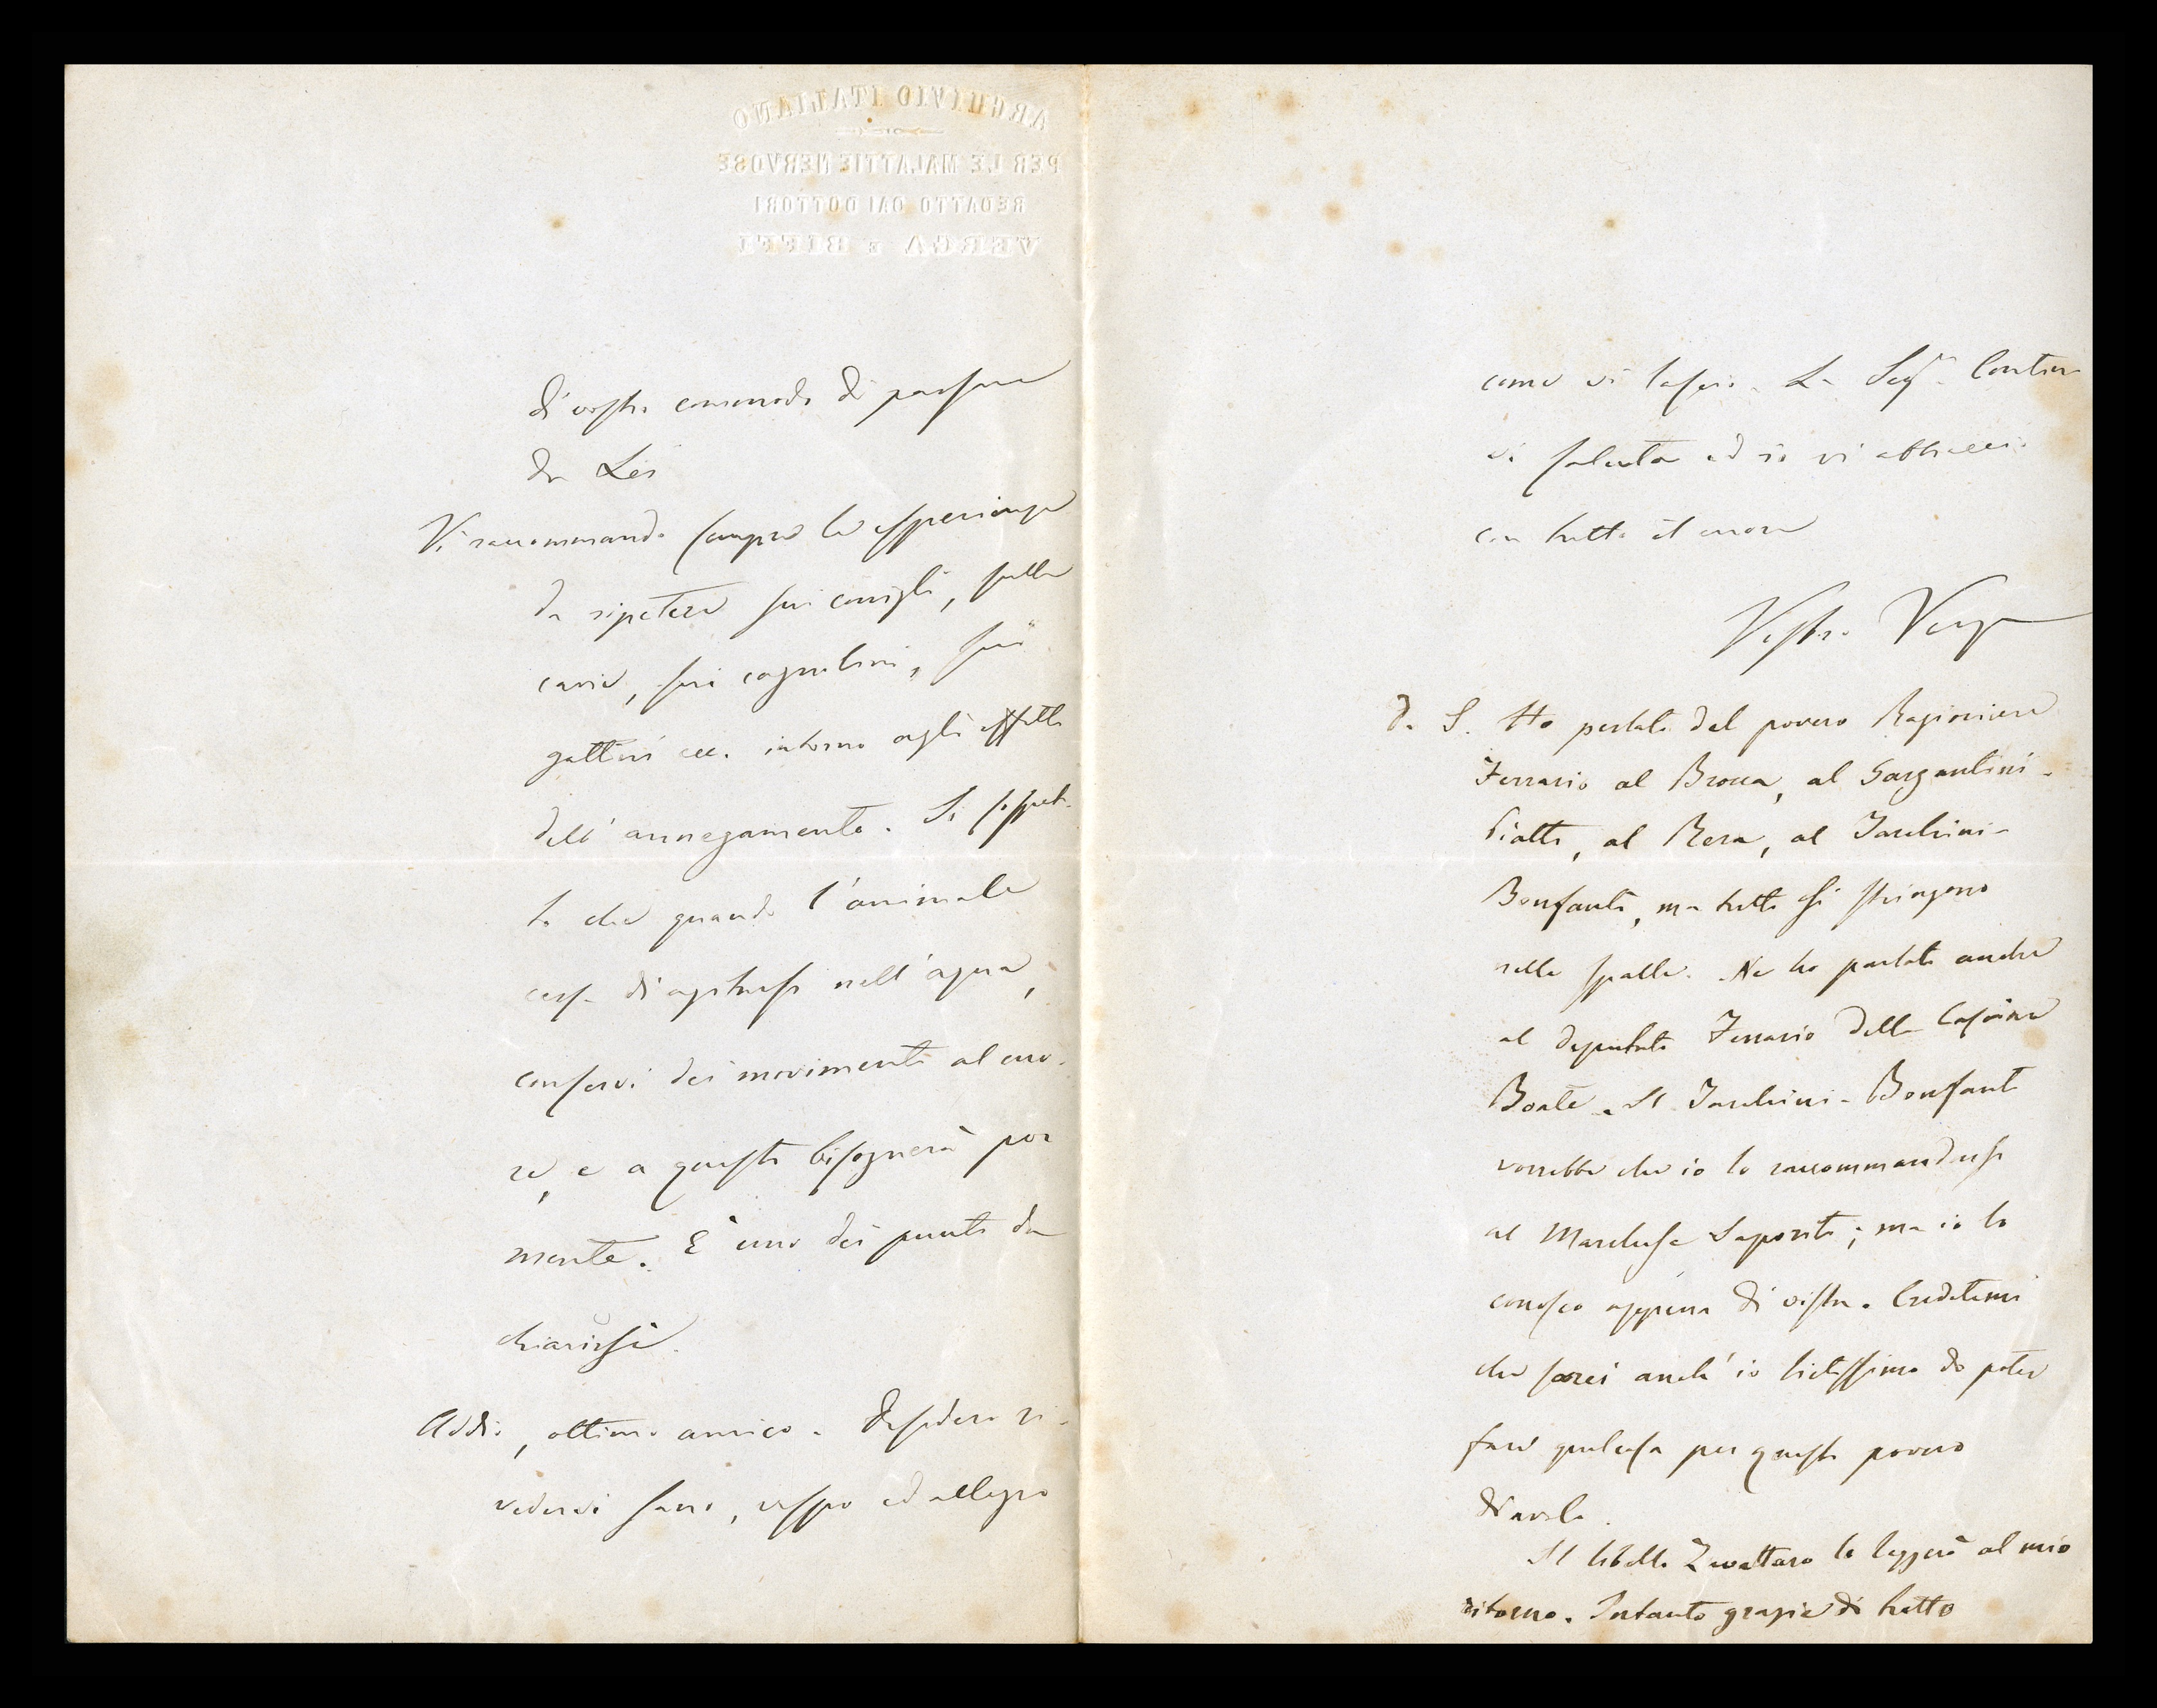 ARCHIVIO ITALIANO
PER LE MALATTIE NERVOSE
REDATTO DAI DOTTORI
VERGA E BIFFI
di vostro commodo di passare
da Lei
Vi raccommando sempre le esperienze
da ripetere sui conigli, sulle
cavie, sui cagnolini, sui
gattini ecc. intorno agli effetti
dell'annegamento. Si sospet-
ta che quando l'animale
cessa di agitarsi nell'acqua,
conservi dei movimenti al cuo-
re, e a questo bisognerà por
mente. È uno dei punti da
chiarirsi.
Addio, ottimo amico. Desidero ri-
vedervi sano, vispo ed allegro
come vi lascio. La Sig.ª
vi saluta ed io vi abbraccio
con tutto il cuore
Vostro Verga
P. S. Ho parlato del povero Ragioniere
Ferrario al Brocca, al Gargantini-
Piatti, al Resa, al Jacchini-
Bonfanti, ma tutti si stringono
nelle spalle. Ne ho parlato anche
al deputato Ferrario della Cascina
Boate. Il Jacchini-Bonfanti
vorrebbe che io lo raccommandassi
al Marchese Saporiti; ma io lo
conosco appena di vista. Credetemi
che sarei anch'io lietissimo di poter
fare qualcosa per questo povero
diavolo.
Il libello Zavattaro lo leggerò al mio
ritorno. Intanto grazie di tutto